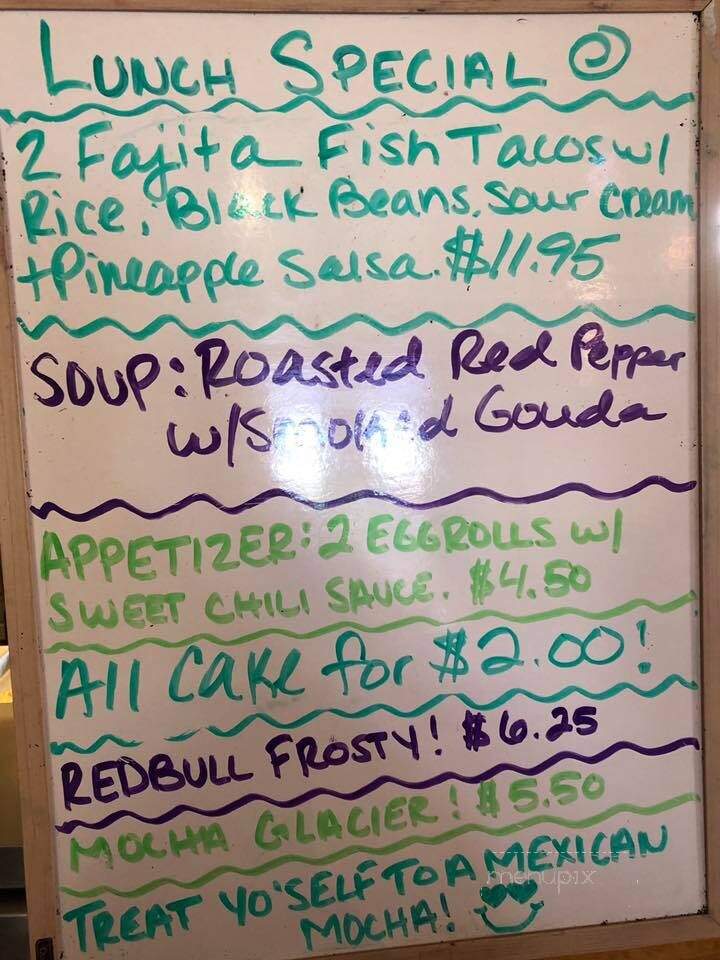 LUNCH SPECIAL
2 Fajita Fish Tacos w/
Rice, Black Beans, Sour Cream
+Pineapple Salsa. $11.95
SOUP: Roasted Red Pepper
w/Smoked Gouda
APPETIZER: 2 EGGROLLS w/
SWEET CHILI SAUCE. $4.50
All Cake for $2.00!
REDBULL FROSTY! $6.25
MOCHA GLACIER! $5.50
TREAT YO'SELF TO A MEXICAN
MOCHA!
menupix